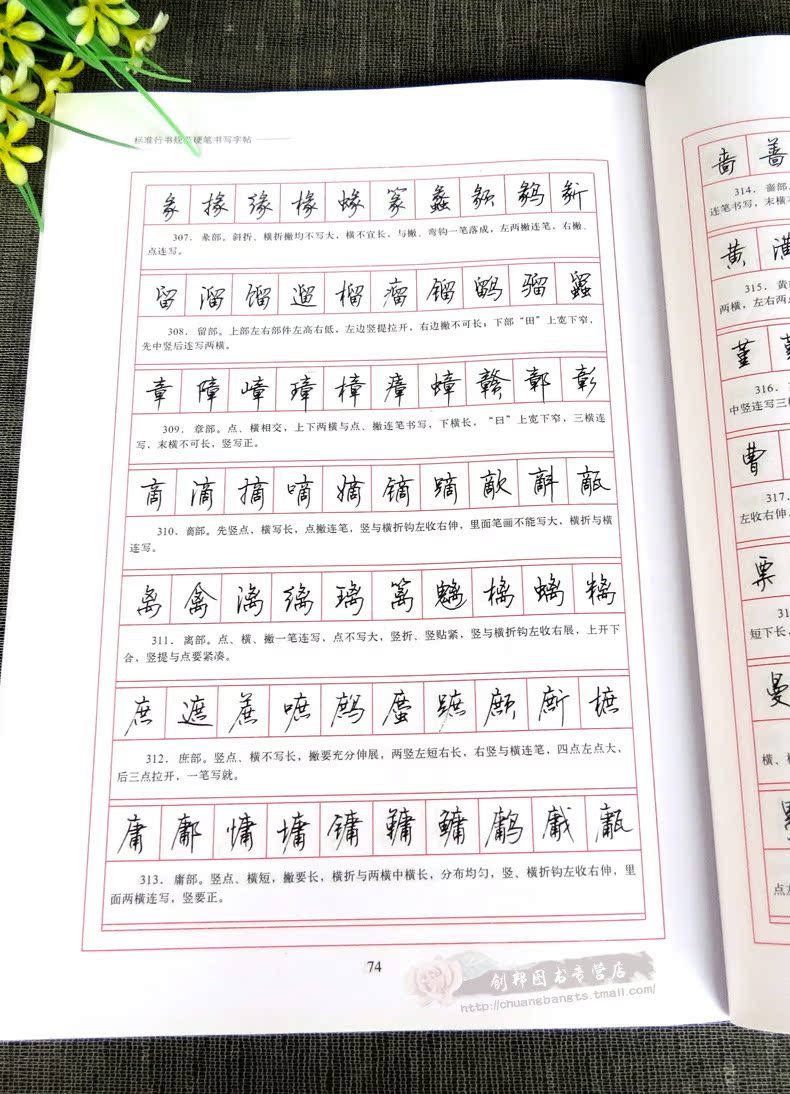 标准行书规范硬笔书写字帖
彖 掾 缘 椽 蝝 篆 蠡
307. 彖部。斜折、横折撇均不写大，横不宜长，与撇、弯钩一笔落成，左两撇连笔，右撇、
点连写。
留 溜 馏 遛 榴 瘤 镏 鹠 骝
308. 留部。上部左右部件左高右低，左边竖提拉开，右边撇不可长；下部“田”上宽下窄，
先中竖后连写两横。
章 障 嶂 璋 樟 瘴 蟑 赣 鄣 彰
309. 章部。点、横相交，上下两横与点、撇连笔书写，下横长，“曰”上宽下窄，三横连
写，末横不可长，竖写正。
啇 滴 摘 嘀 嫡 镝 蹢 敵
310. 啇部。先竖点，横写长，点撇连笔，竖与横折钩左收右伸，里面笔画不能写大，横折与横
连写。
离 禽 漓 缡 璃 篱 魑 樆 螭
311. 离部。点、横、撇一笔连写，点不写大，竖折、竖贴紧，竖与横折钩左收右展，上开下
合，竖提与点要紧凑。
庶 遮 蔗 嗻 鹧 䗪 蹠
312. 庶部。竖点、横不写长，撇要充分伸展，两竖左短右长，右竖与横连笔，四点左点大，
后三点拉开，一笔写就。
庸 鄘 慵 墉 镛 鳙 鷛
313. 庸部。竖点、横短，撇要长，横折与两横中横长，分布均匀，竖、横折钩左收右伸，里
面两横连写，竖要正。
74
啬 蔷
314. 啬部
连笔书写，末横不
黄 潢
315. 黄
两横，左右两点
堇
316.
中竖连写三横
曹
317.
左收右伸，
票
短下长，
曼
横、
点左
创邦图书专营店
http://chuangbangts.tmall.com/